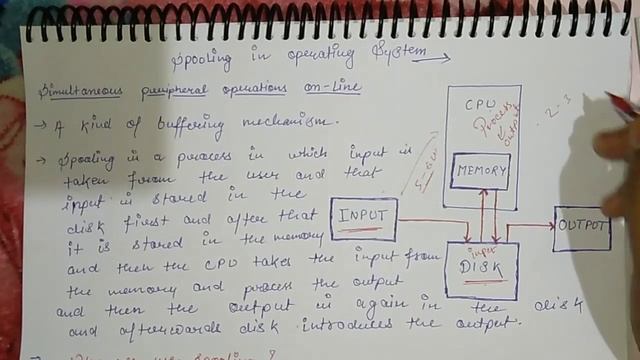 Spooling in operating System
Simultaneous peripheral operations on-line
→ A kind of buffering mechanism.
→ Spooling is a process in which input is
taken from the user and that
input is stored in the
disk first and after that
it is stored in the memory
and then the CPU takes the input from
the memory and process the output
and then the output is again in the disk
and afterwards disk introduces the output.
CPU
Process
output
MEMORY
INPUT
input
DISK
OUTPUT
2-3